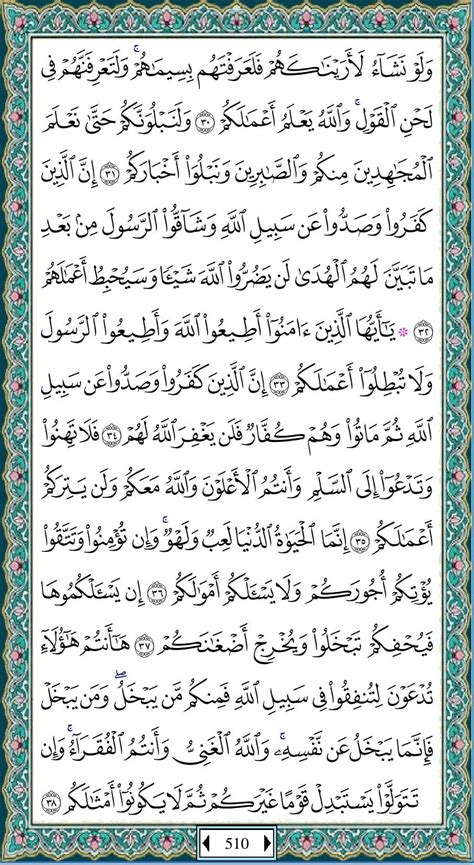 وَلَوْ نَشَآءُ لَأَرَيْنَٰكَهُمْ فَلَعَرَفْتَهُم بِسِيمَٰهُمْ ۚ وَلَتَعْرِفَنَّهُمْ فِى
لَحْنِ ٱلْقَوْلِ ۚ وَٱللَّهُ يَعْلَمُ أَعْمَٰلَكُمْ ٣٠ وَلَنَبْلُوَنَّكُمْ حَتَّىٰ نَعْلَمَ
ٱلْمُجَٰهِدِينَ مِنكُمْ وَٱلصَّٰبِرِينَ وَنَبْلُوَا۟ أَخْبَارَكُمْ ٣١ إِنَّ ٱلَّذِينَ
كَفَرُوا۟ وَصَدُّوا۟ عَن سَبِيلِ ٱللَّهِ وَشَآقُّوا۟ ٱلرَّسُولَ مِنۢ بَعْدِ
مَا تَبَيَّنَ لَهُمُ ٱلْهُدَىٰ لَن يَضُرُّوا۟ ٱللَّهَ شَيْـًٔا وَسَيُحْبِطُ أَعْمَٰلَهُمْ
٣٢ ۞ يَٰٓأَيُّهَا ٱلَّذِينَ ءَامَنُوٓا۟ أَطِيعُوا۟ ٱللَّهَ وَأَطِيعُوا۟ ٱلرَّسُولَ
وَلَا تُبْطِلُوٓا۟ أَعْمَٰلَكُمْ ٣٣ إِنَّ ٱلَّذِينَ كَفَرُوا۟ وَصَدُّوا۟ عَن سَبِيلِ
ٱللَّهِ ثُمَّ مَاتُوا۟ وَهُمْ كُفَّارٌ فَلَن يَغْفِرَ ٱللَّهُ لَهُمْ ٣٤ فَلَا تَهِنُوا۟
وَتَدْعُوٓا۟ إِلَى ٱلسَّلْمِ وَأَنتُمُ ٱلْأَعْلَوْنَ وَٱللَّهُ مَعَكُمْ وَلَن يَتِرَكُمْ
أَعْمَٰلَكُمْ ٣٥ إِنَّمَا ٱلْحَيَوٰةُ ٱلدُّنْيَا لَعِبٌ وَلَهْوٌ ۚ وَإِن تُؤْمِنُوا۟ وَتَتَّقُوا۟
يُؤْتِكُمْ أُجُورَكُمْ وَلَا يَسْـَٔلْكُمْ أَمْوَٰلَكُمْ ٣٦ إِن يَسْـَٔلْكُمُوهَا
فَيُحْفِكُمْ تَبْخَلُوا۟ وَيُخْرِجْ أَضْغَٰنَكُمْ ٣٧ هَٰٓأَنتُمْ هَٰٓؤُلَآءِ
تُدْعَوْنَ لِتُنفِقُوا۟ فِى سَبِيلِ ٱللَّهِ فَمِنكُم مَّن يَبْخَلُ ۖ وَمَن يَبْخَلْ
فَإِنَّمَا يَبْخَلُ عَن نَّفْسِهِۦ ۚ وَٱللَّهُ ٱلْغَنِىُّ وَأَنتُمُ ٱلْفُقَرَآءُ ۚ وَإِن
تَتَوَلَّوْا۟ يَسْتَبْدِلْ قَوْمًا غَيْرَكُمْ ثُمَّ لَا يَكُونُوٓا۟ أَمْثَٰلَكُم ٣٨
510